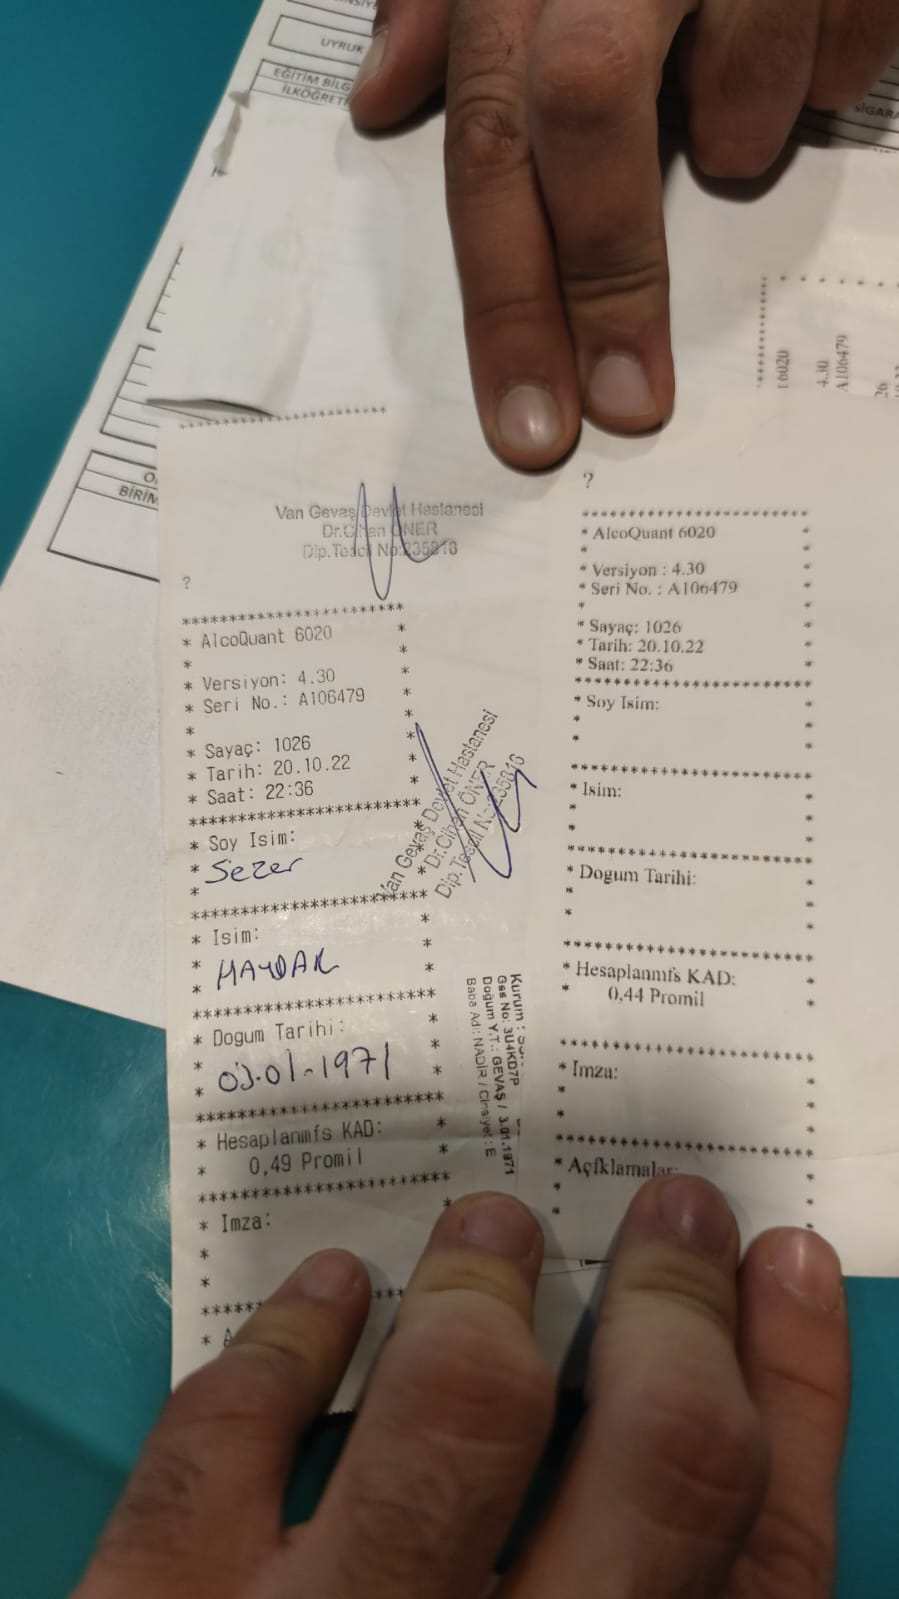 UYRUK
EĞİTİM BİLG
İLKÖĞRET
SİGARA
BİRİM
16020
4.30
A106479
Van Gevaş Devlet Hastanesi
Dr.Cihan ÖNER
Dip.Tescil No:235810
?
************************
* AlcoQuant 6020 *
* *
* Versiyon: 4.30 *
* Seri No.: A106479 *
* *
* Sayaç: 1026 *
* Tarih: 20.10.22 *
* Saat: 22:36 *
************************
* Soy Isim: *
* Sezer *
* *
************************
* Isim: *
* HAYDAR *
* *
************************
* Dogum Tarihi: *
* 03.01.1971 *
* *
************************
* Hesaplanmfs KAD: *
* 0,49 Promil *
************************
* Imza: *
*
*
Van Gevaş Devlet Hastanesi
Dr.Cihan ÖNER
Dip.Tescil No:235810
Kurum :
Gss No: 3U4KD7P
Doğum Y.T.: GEVAŞ / 3.01.1971
Baba Adı: NADİR / Cinsiyet: E
?
************************
* AlcoQuant 6020 *
* *
* Versiyon : 4.30 *
* Seri No. : A106479 *
* *
* Sayaç: 1026 *
* Tarih: 20.10.22 *
* Saat: 22:36 *
************************
* Soy Isim: *
* *
* *
************************
* Isim: *
* *
* *
************************
* Dogum Tarihi: *
* *
* *
************************
* Hesaplanmfs KAD: *
* 0,44 Promil *
************************
* Imza: *
* *
* *
************************
* Açfklamalar: *
* *
* *